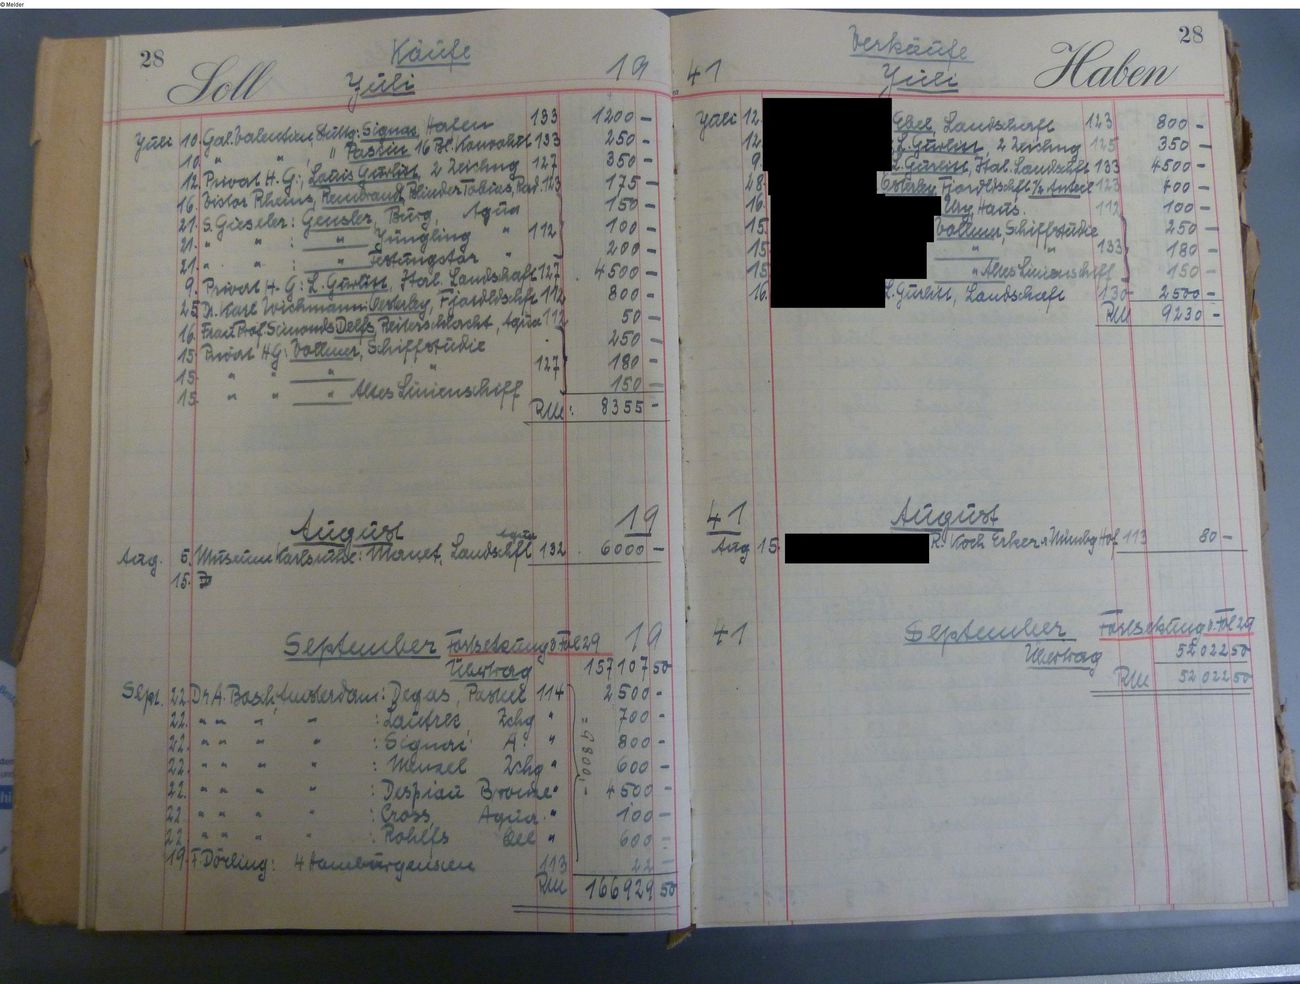 © Melder
28
Käufe
Soll
Juli
19
Juli 10. Gal. Valentien, Stuttg: Signac, Hafen 133 1200 -
10 " " " Pascin 16 Bl. 133 250 -
12 Privat H. G.: Louis Gurlitt, 2 Zeichng 127 350 -
16. Viktor Rheins, Rembrandt, Blinder Tobias, Rad. 123 175 -
21. S. Gieseler: Gensler, Burg, Aqua 150 -
21. " " : " Jüngling " 112 100 -
21. " " : " Festungstor " 200 -
9. Privat H. G: L. Gurlitt, Harl. Landschaft 127 4500 -
25 Dr. Karl Wichmann: Oesterley, Fjordldschft 112 800 -
16. Frau Prof Simonds Delfs, Reiterschlacht, Aqua 112 50 -
15 Privat HG: Vollmer, Schiffstudie 250 -
15. " " " " 127 180 -
15. " " " Altes Linienschiff 150 -
RM: 8355 -
August 19
Aug. 5. Museum Karlsruhe: Manet, Landschft Aqua 132 6000 -
15.
September Fortsetzung s. Fol 29 19
Übertrag 157107 50
Sept. 22. Dr A. Bosh, Amsterdam: Degas, Pastell 114 2500 -
22. " " " " : Lautrec, Zchg " 700 -
22. " " " " : Signac A. " 800 -
22. " " " " : Menzel Zchg " 600 -
22. " " " " : Despiau Bronze " 4500 -
22. " " " " : Cross, Aqua " 100 -
22 " " " " : Rohlfs Oel " 600 -
= 9800,-
19. F. Dörling: 4 Hamburgensien 113 22 -
RM 166929 50
28
Verkäufe
41 Juli Haben
Juli 12. Ebel, Landschaft 123 800 -
12. L. Gurlitt, 2 Zeichng 125 350 -
9. L. Gurlitt, Harl. Landschaft 133 4500 -
28. Österley Fjordldschft ½ Anteil 123 400 -
16. Ury, Haus. 112 100 -
15. Vollmer, Schiffstudie 250 -
15. " " 133 180 -
15. " Altes Linienschiff 150 -
16. L. Gurlitt, Landschaft 130 2500 -
RM 9230 -
41 August
Aug 15. R. Koch Erker u Nürnbg Hof 113 80 -
41 September Fortsetzung s. Fol 29
Übertrag 52022 50
RM 52022 50